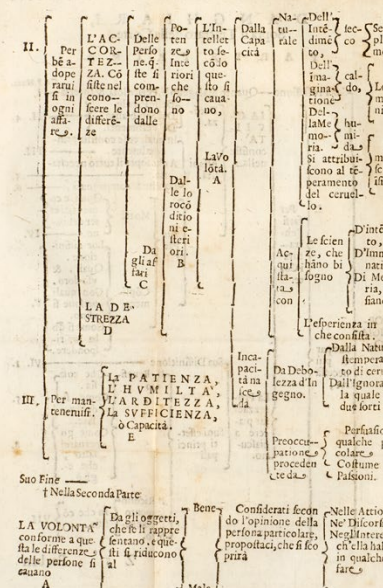 II.
Per
bē a-
dope
rarui
si in
ogni
affa-
re.
L'AC-
COR-
TEZ--
ZA. Cō
siste nel
cono--
scere le
differē-
ze
Delle
Perso
ne. q.
ste si
com-
pren-
dono
dalle
Po-
ten
ze
Inte
riori
che
so--
no
L'In-
tellet
to se-
cō lo
que-
sto si
caua-
no,
LaVo
lōtà.
A
Dal-
le lo
rocō
ditio
ni e-
steri
ori.
B
Da
gli af
fari
C
LA DE-
STREZZA
D
Dalla
Capa
cità
Na-
tu--
rale
Dell'
Intē-
dimē-
to,
sec-
co
Dell'
ima-
gina-
tione
cal-
do,
Del-
laMe
mo--
ria.
hu-
mi-
da
Si attribui-
scono al tē-
peramento
del ceruel-
lo.
Ac-
qui
sta-
ta
con
Le scien
ze, che
hāno bi
sogno
D'intē
to,
D'Imm
nati
Di Me
ria,
sian
L'esperienza in
che consista.
Inca-
paci-
tà na
sce
da
Da Debo-
lezza d'In
gegno.
Dalla Natu
stempera
to di cer
Dall'Ignora
la quale
due sorti
Preoccu--
patione
proceden
te da
Persuasio
qualche
colare
Costume
Passioni.
III.
Per man-
tenerui si.
La PATIENZA,
L'HVMILTA',
L'ARDITEZZA,
La SVFFICIENZA,
ò Capacità.
E
Suo Fine
† Nella Seconda Parte
LA VOLONTA'
conforme a que-
sta le differenze
delle persone si
cauano
A
Da gli oggetti,
che se li rappre
sentano. e que-
sti si riducono
al
Bene
Considerati secon
do l'opinione della
persona particolare,
propostaci, che si sco
prirà
Nelle Attio
Ne' Discorsi
Negl'Intere
ch'ella ha
in qualche
fare